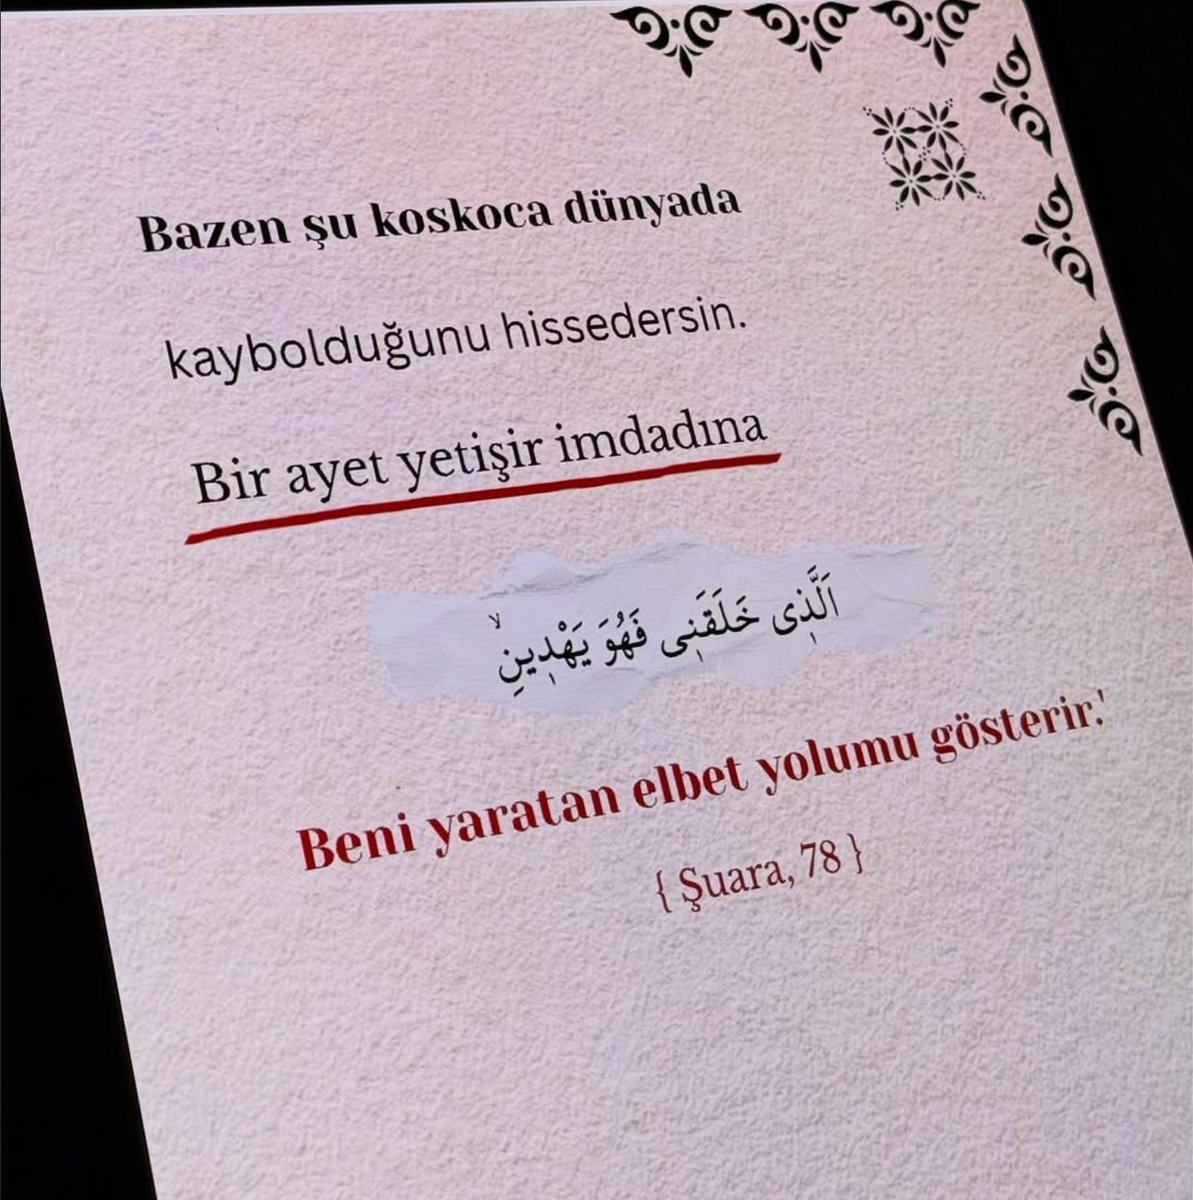 Bazen şu koskoca dünyada
kaybolduğunu hissedersin.
Bir ayet yetişir imdadına
اَلَّذ۪ى خَلَقَن۪ى فَهُوَ يَهْد۪ينِۙ
Beni yaratan elbet yolumu gösterir.'
{ Şuara, 78 }